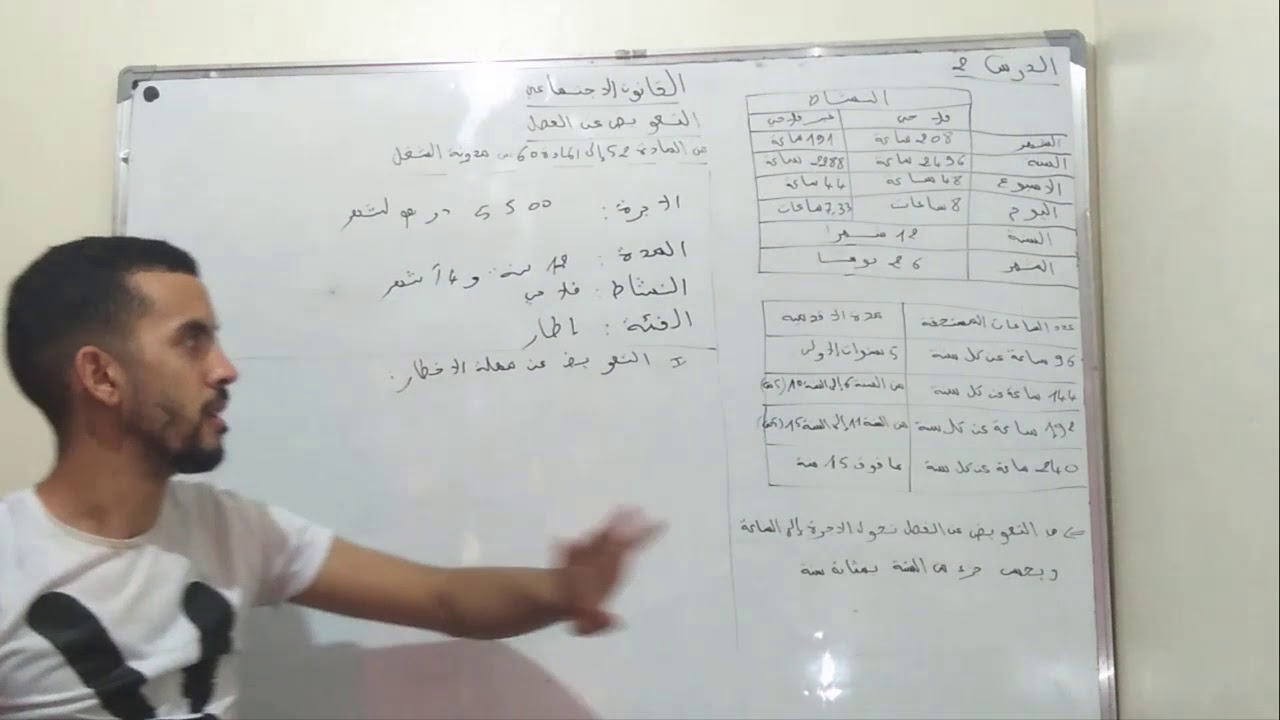 الدرس 2
النشاط
فلاحي غير فلاحي
الشهر 208 ساعة 191 ساعة
السنة 2496 ساعة 2288 ساعة
الاسبوع 48 ساعة 44 ساعة
اليوم 8 ساعات 7,33 ساعات
السنة 12 شهرا
الشهر 26 يوما
عدد الساعات المستحقة مدة الاقدمية
96 ساعة عن كل سنة 5 سنوات الاولى
144 ساعة عن كل سنة من السنة 6 إلى السنة 10
192 ساعة عن كل سنة من السنة 11 إلى السنة 15
240 ساعة عن كل سنة ما فوق 15 سنة
التعويض عن الفصل نحول الاجرة إلى الساعة
ويحسب جزء من السنة بمثابة سنة
القانون الاجتماعي
التعويض عن الفصل
من المادة 52 إلى المادة 60 من مدونة الشغل
الاجرة: 5500 درهم لشهر
المدة: 12 سنة و 4 أشهر
النشاط: فلاحي
الفئة: اطار
I التعويض عن مهلة الاخطار: